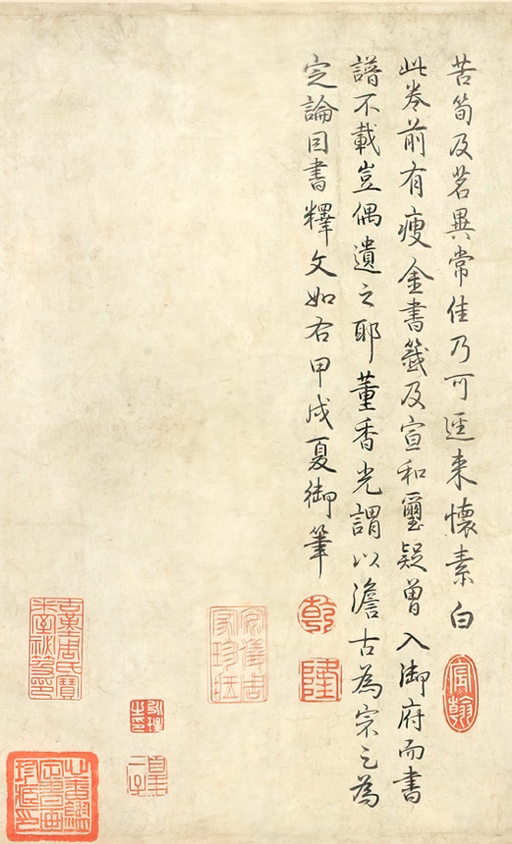 苦筍及茗異常佳乃可逕来懷素白
此卷前有瘦金書籤及宣和璽疑曾入御府而書
譜不載豈偶遺之耶董香光謂以澹古為宗之為
定論因書釋文如右甲戌夏御筆
乾
隆
安儀周
家珍藏